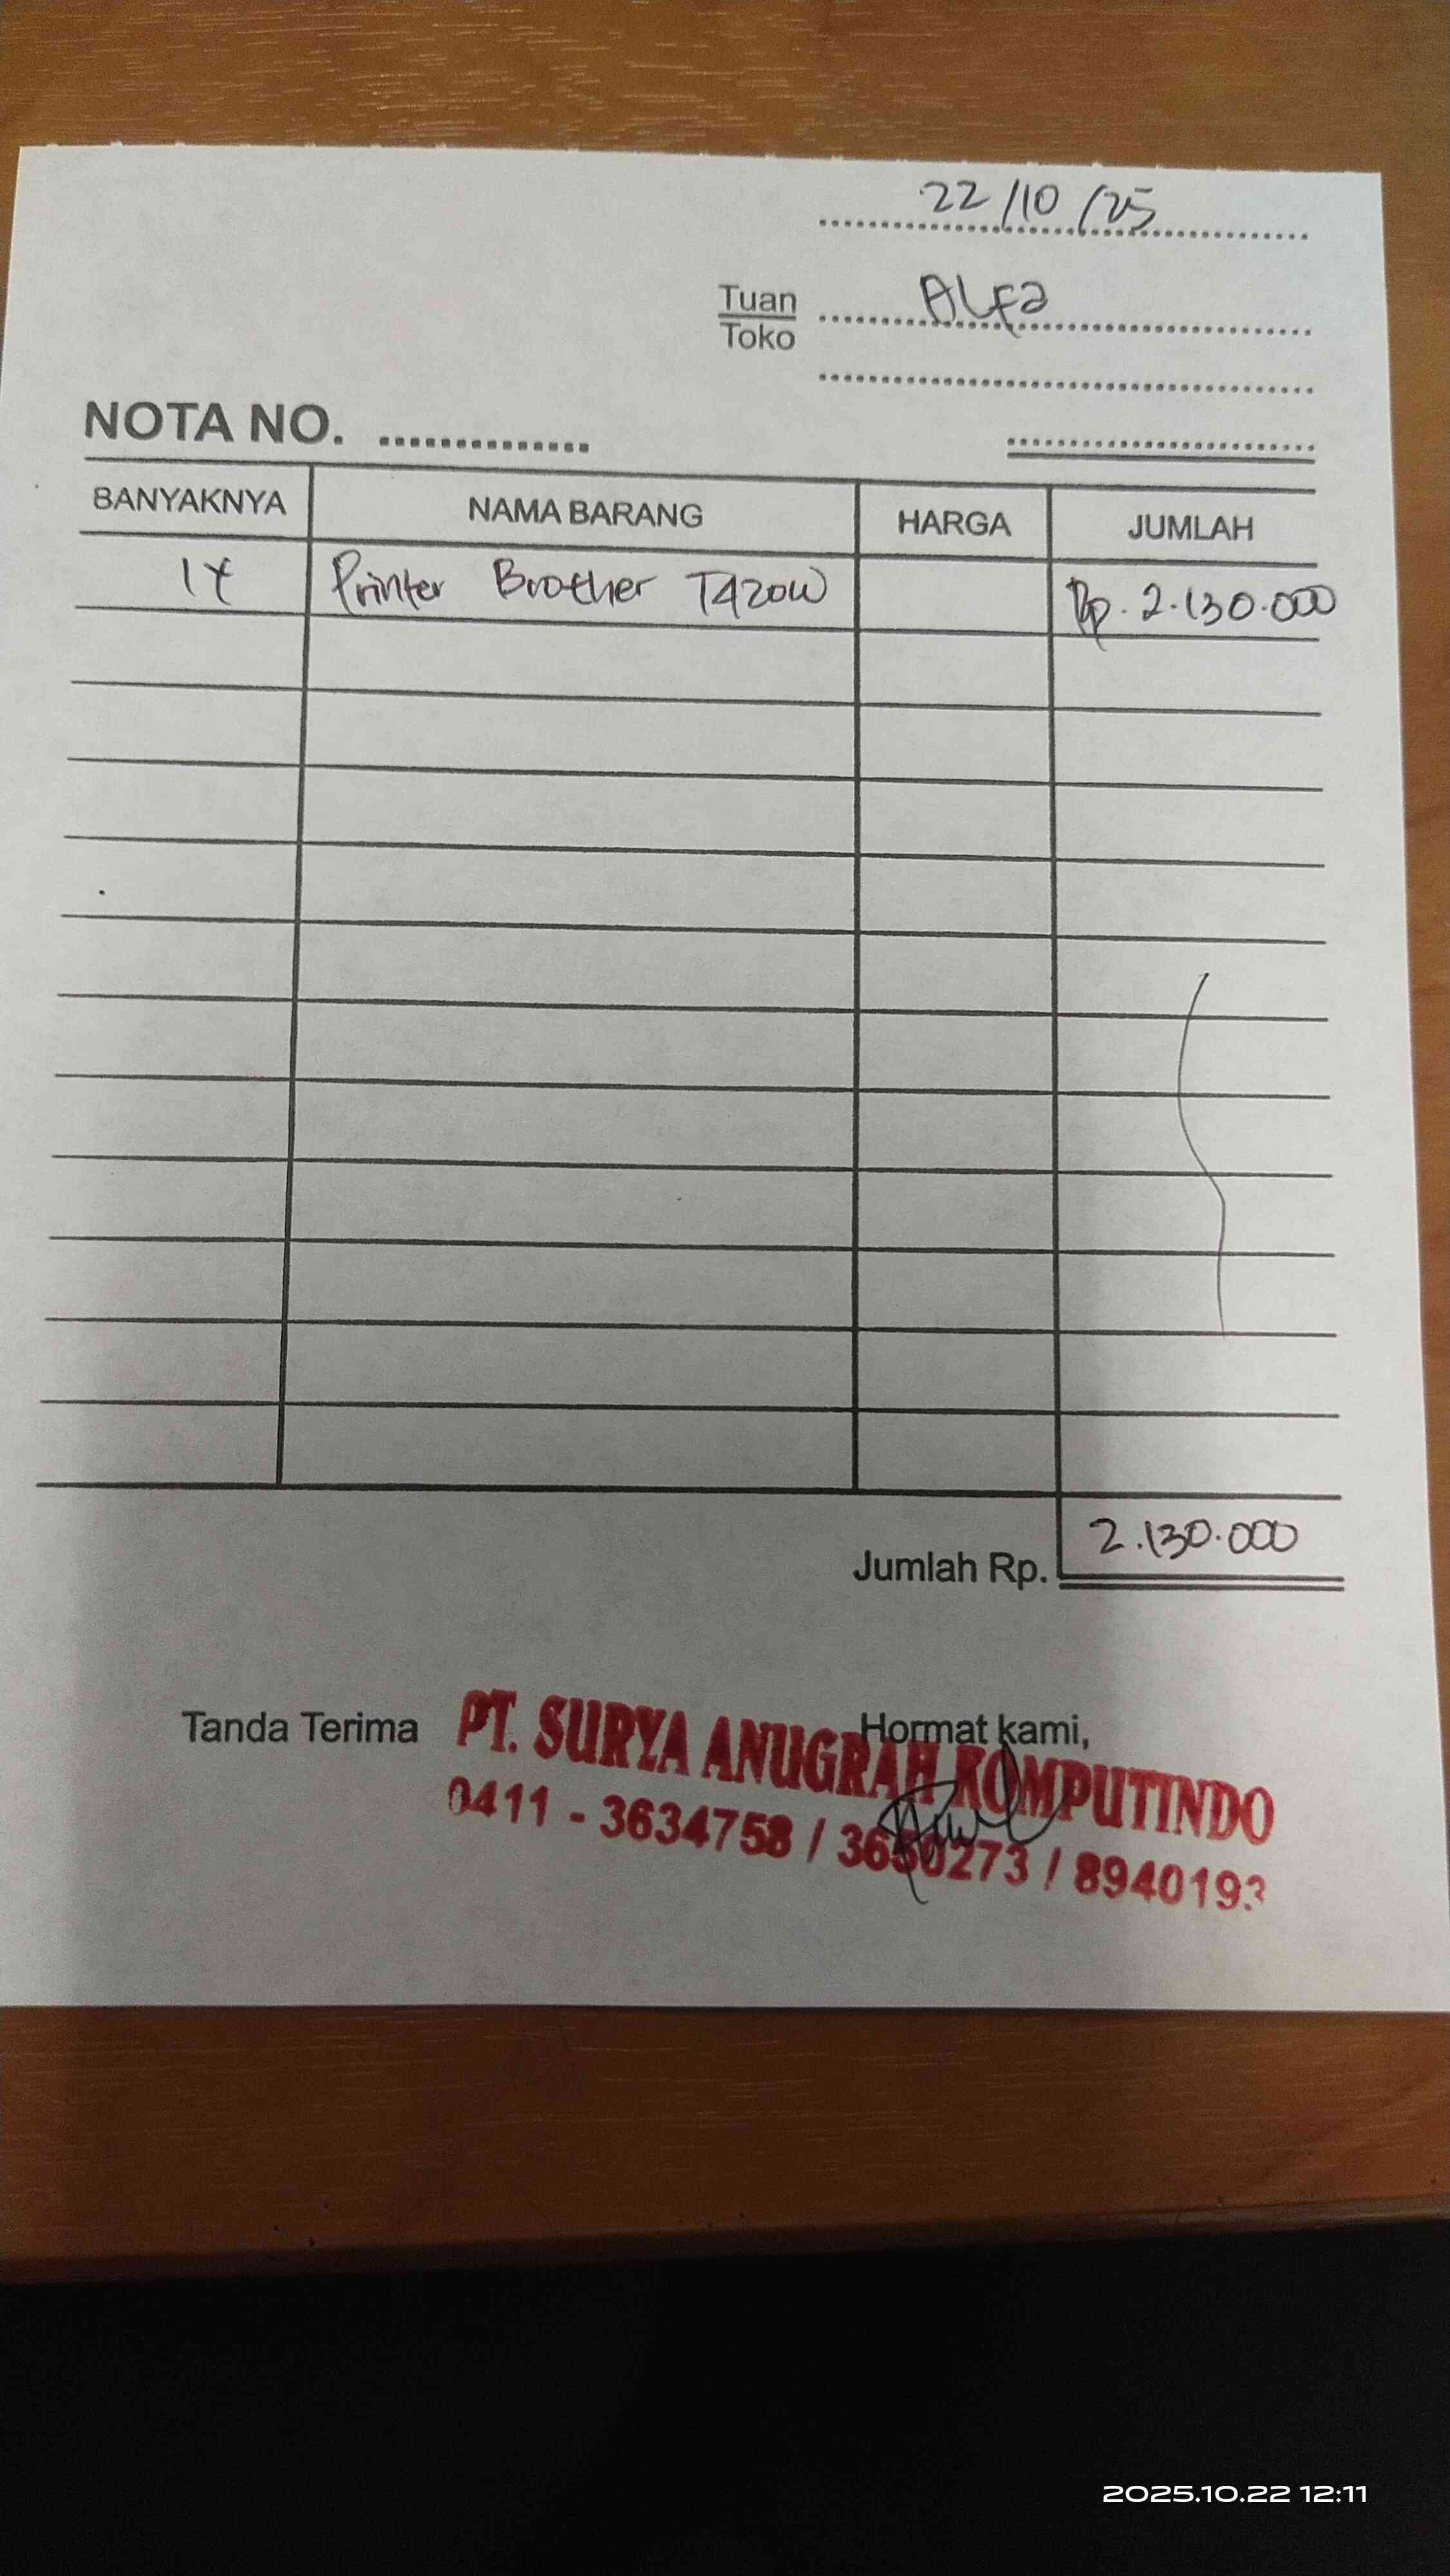 22/10/25
Tuan
Toko
Alfa
NOTA NO.
BANYAKNYA NAMA BARANG HARGA JUMLAH
1x Printer Brother T420W Rp. 2.130.000
Jumlah Rp. 2.130.000
Tanda Terima Hormat kami,
PT. SURYA ANUGRAH KOMPUTINDO
0411 - 3634758 / 3650273 / 8940193
2025.10.22 12:11